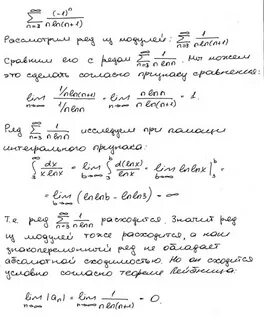 \sum_{n=3}^{\infty} \frac{(-1)^n}{n \ln(n+1)}
Рассмотрим ряд из модулей: \sum_{n=3}^{\infty} \frac{1}{n \ln(n+1)}
Сравним его с рядом \sum_{n=3}^{\infty} \frac{1}{n \ln n}. Мы можем
это сделать согласно признаку сравнения:
\lim_{n \to \infty} \frac{1/n \ln(n+1)}{1/n \ln n} = \lim_{n \to \infty} \frac{n \ln n}{n \ln(n+1)} = 1.
Ряд \sum_{n=3}^{\infty} \frac{1}{n \ln n} исследуем при помощи
интегрального признака:
\int_3^{\infty} \frac{dx}{x \ln x} = \lim_{b \to \infty} \int_3^b \frac{d(\ln x)}{\ln x} = \lim_{b \to \infty} \ln \ln x |_3^b =
= \lim_{b \to \infty} (\ln \ln b - \ln \ln 3) = \infty
Т.е. ряд \sum_{n=3}^{\infty} \frac{1}{n \ln n} расходится. Значит ряд
из модулей тоже расходится, а наш
знакопеременный ряд не обладает
абсолютной сходимостью. Но он сходится
условно согласно теореме Лейбница:
\lim_{n \to \infty} |a_n| = \lim_{n \to \infty} \frac{1}{n \ln(n+1)} = 0.